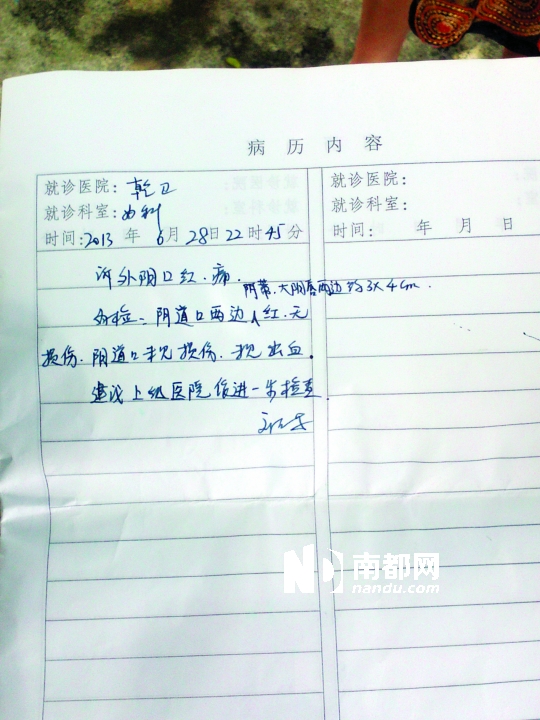 病历内容
就诊医院：乾卫
就诊科室：妇科
时间：2013年6月28日22时45分
诉外阴口红、痛
阴蒂、大阴唇两边约3x4cm.
外检：阴道口两边红、无
损伤、阴道口未见损伤、未见出血.
建议上级医院作进一步检查.
就诊医院：
就诊科室：
时间： 年 月 日
ND 南都网
nandu.com